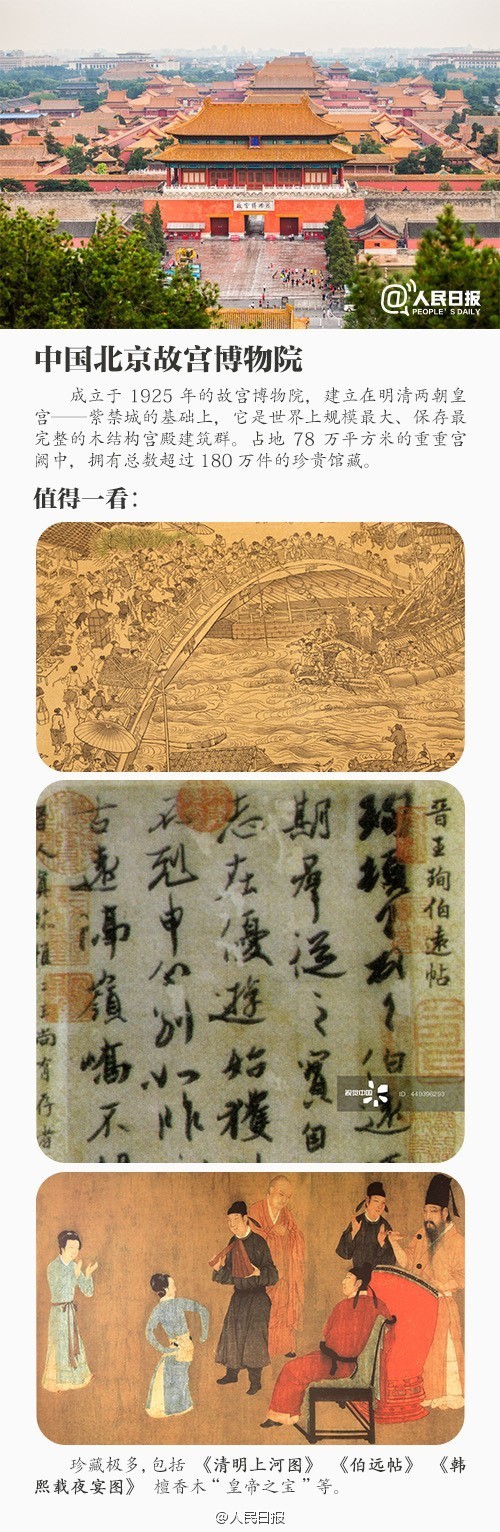 故宫博物院
@人民日报
PEOPLE'S DAILY
中国北京故宫博物院
成立于 1925 年的故宫博物院，建立在明清两朝皇
宫——紫禁城的基础上，它是世界上规模最大、保存最
完整的木结构宫殿建筑群。占地 78 万平方米的重重宫
阙中，拥有总数超过 180 万件的珍贵馆藏。
值得一看：
晋王珣伯遠帖
珣頓首頓首伯遠
期群從之寳自
志在優遊始獲
否剋申分別如昨
古遠隔嶺嶠不
晋人真跡惟二王尚有存者
视觉中国
ID: 449396293
珍藏极多，包括 《清明上河图》 《伯远帖》 《韩
熙载夜宴图》 檀香木“皇帝之宝”等。
@人民日报